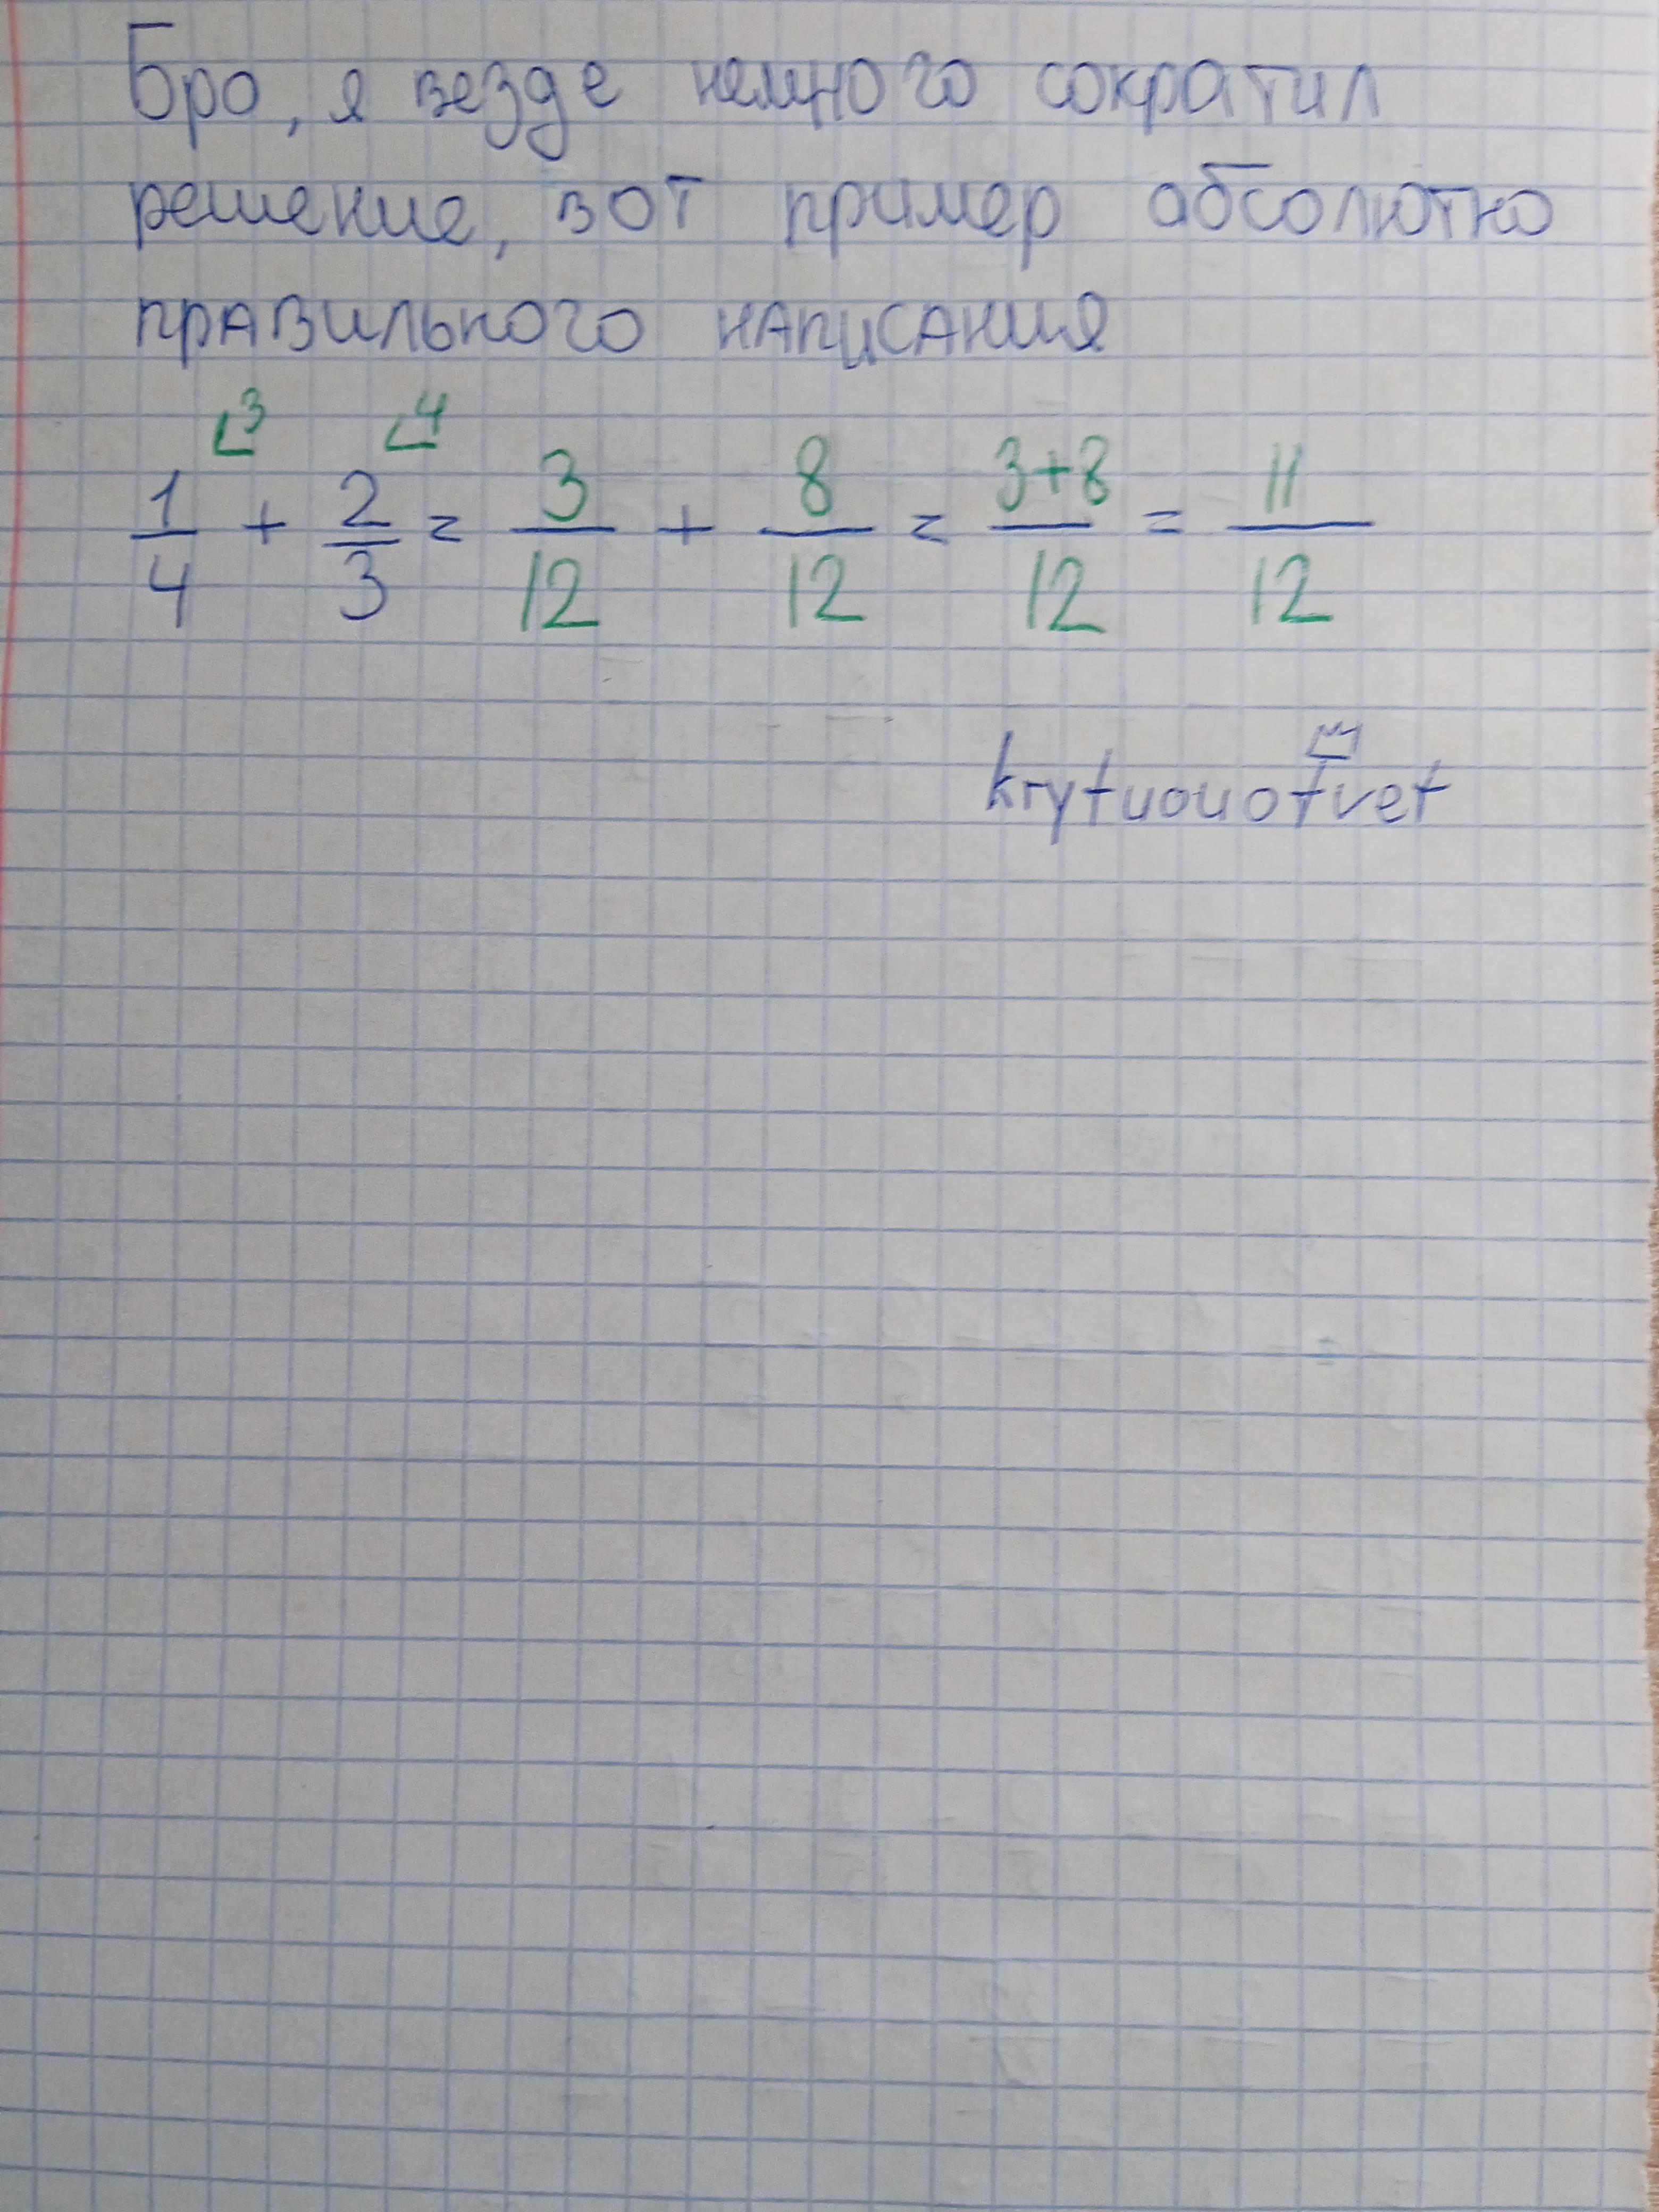 Бро, я везде немного сократил
решение, вот пример абсолютно
правильного написания
1/4 ⌞3 + 2/3 ⌞4 = 3/12 + 8/12 = 3+8/12 = 11/12
krytuouotvet